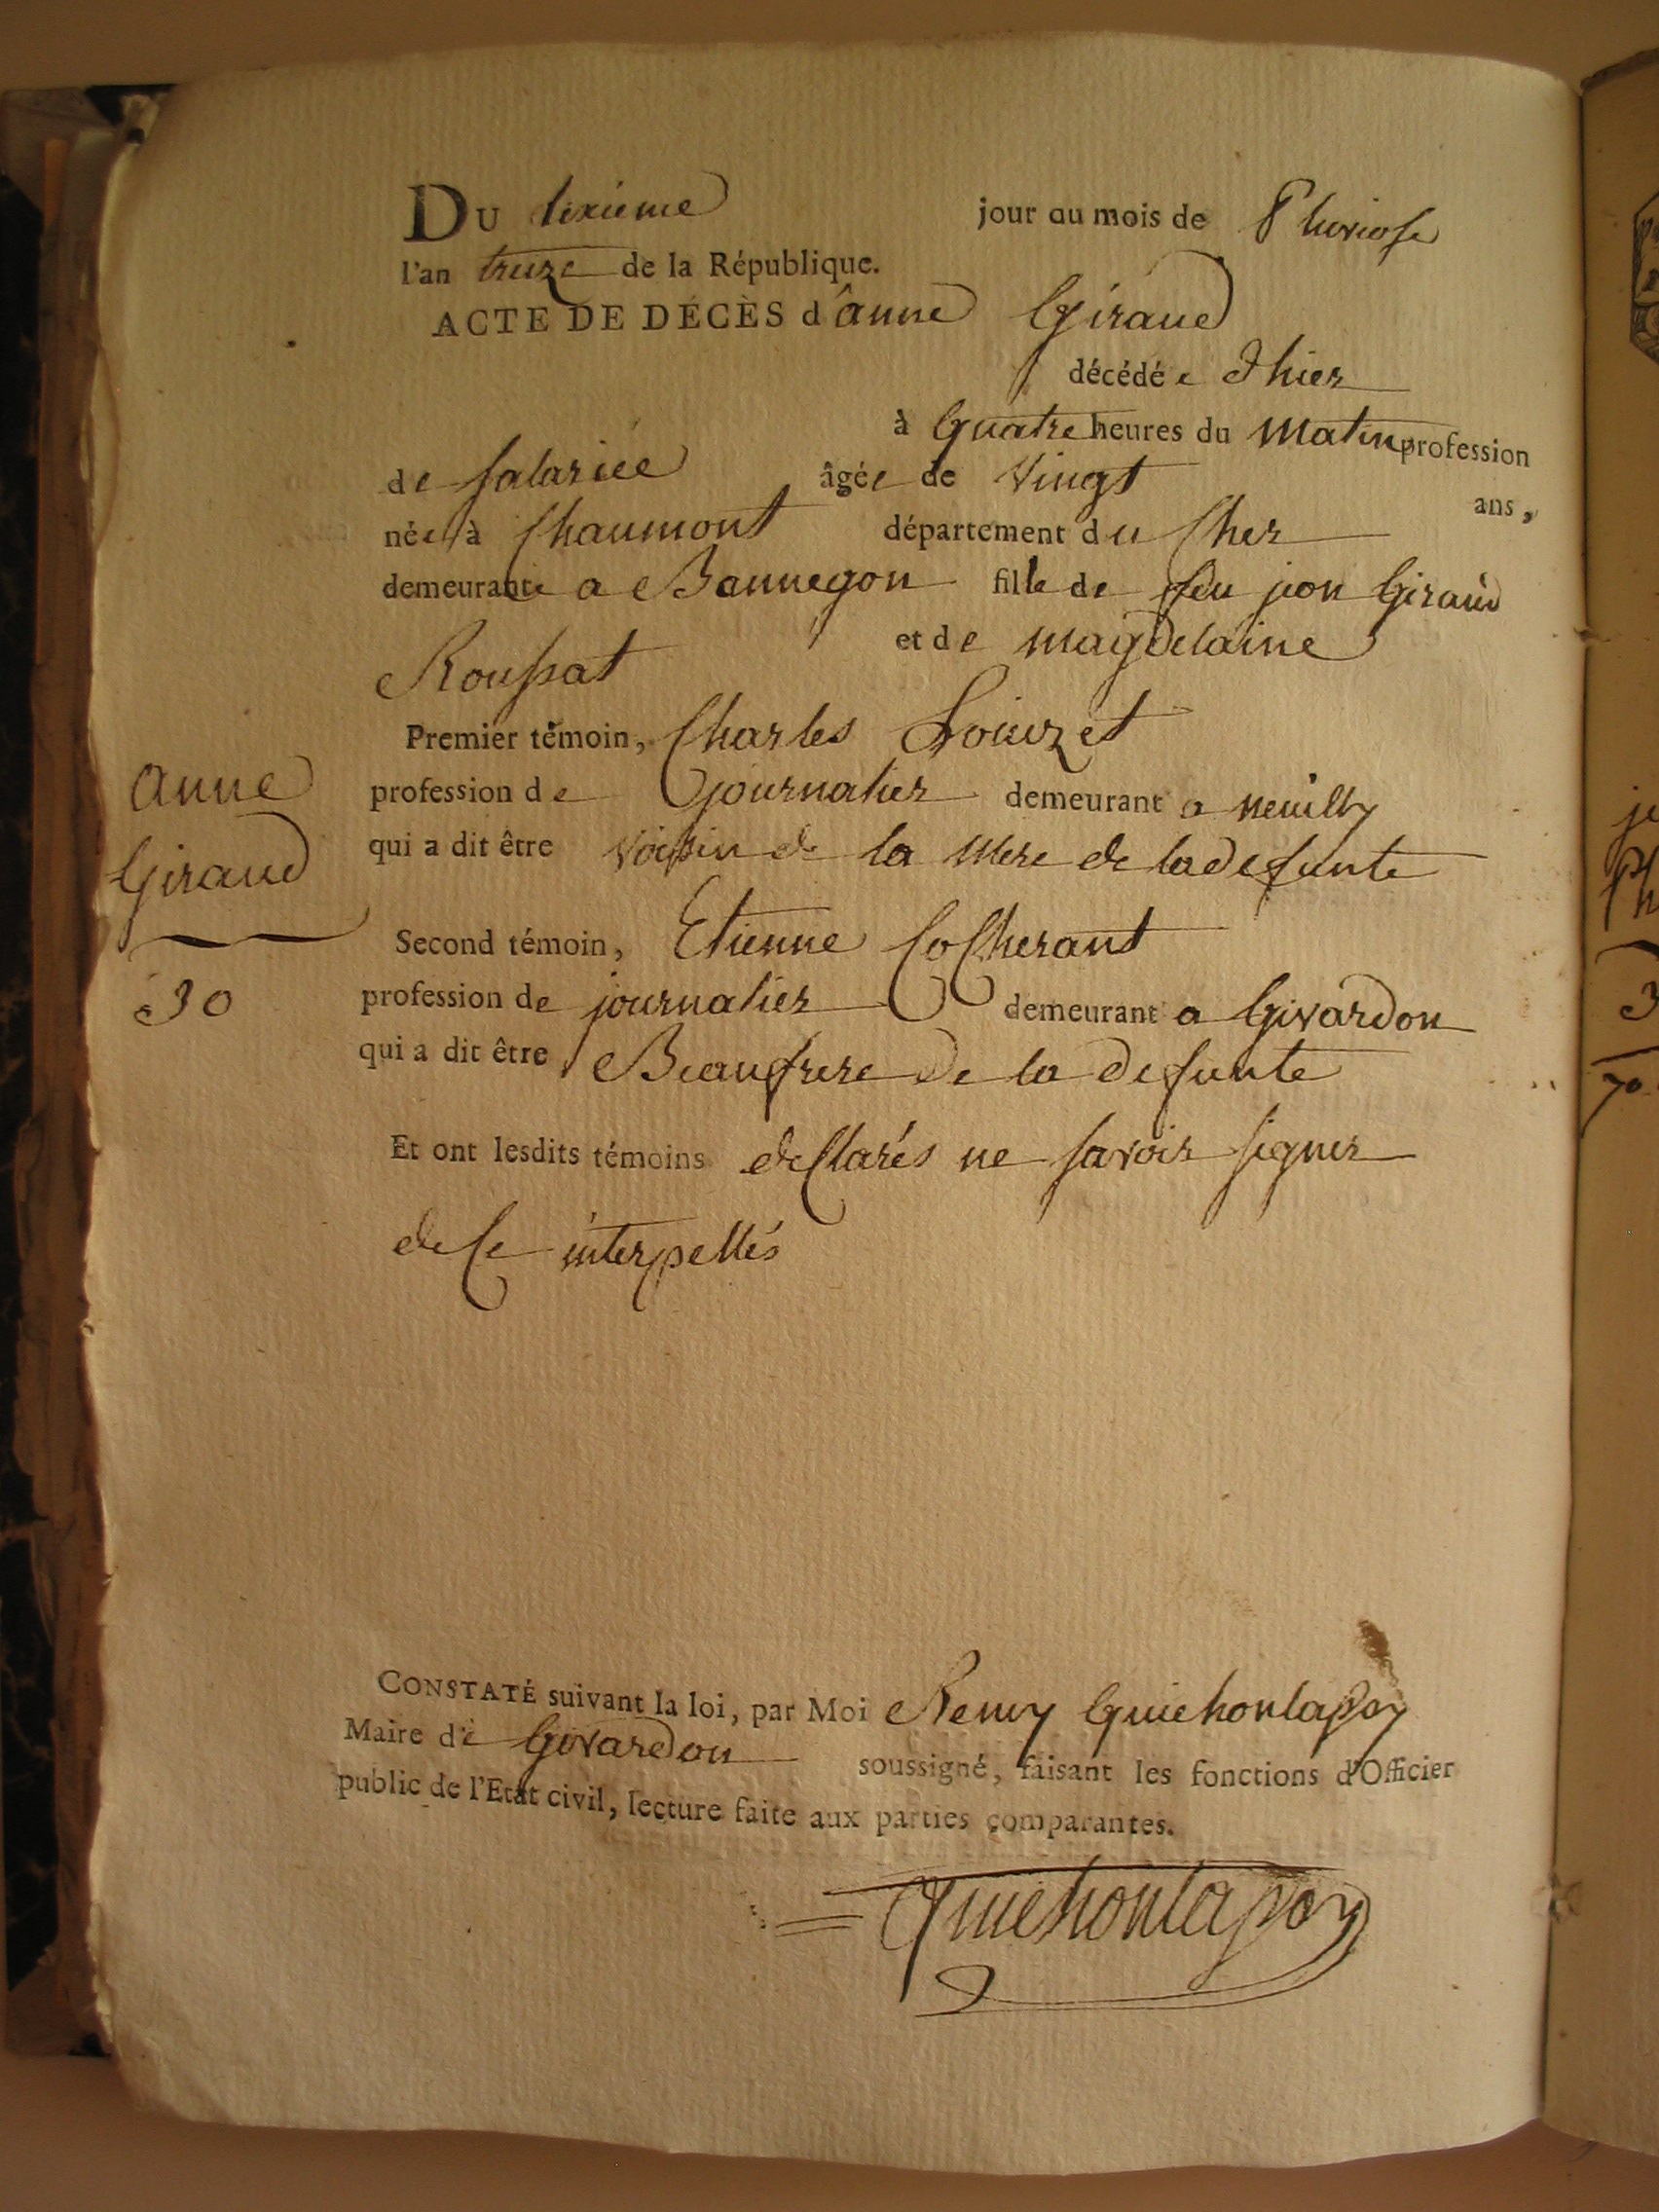 DU sixieme jour du mois de Pluviose
l'an treize de la République.
ACTE DE DÉCÈS d'anne Giraud
décédée d'hier
à Quatre heures du Matin profession
de salariée âgée de Vingt ans,
née à Chaumont département du Cher
demeurante a Bannegon fille de feu jean Giraud
et de magdelaine
Roussat
Premier témoin, Charles
profession de journalier demeurant a neuilly
qui a dit être Voissin de la Mere de la defunte
anne
Giraud
Second témoin, Etienne CoCherant
profession de journalier demeurant a Givardon
qui a dit être Beaufrere De la defunte
30
Et ont lesdits témoins declarés ne savoir signer
de Ce interpellés
CONSTATÉ suivant la loi, par Moi Remy Quichonlapoy
Maire de Givardon soussigné, faisant les fonctions d'Officier
public de l'Etat civil, lecture faite aux parties comparantes.
Quichonlapoy